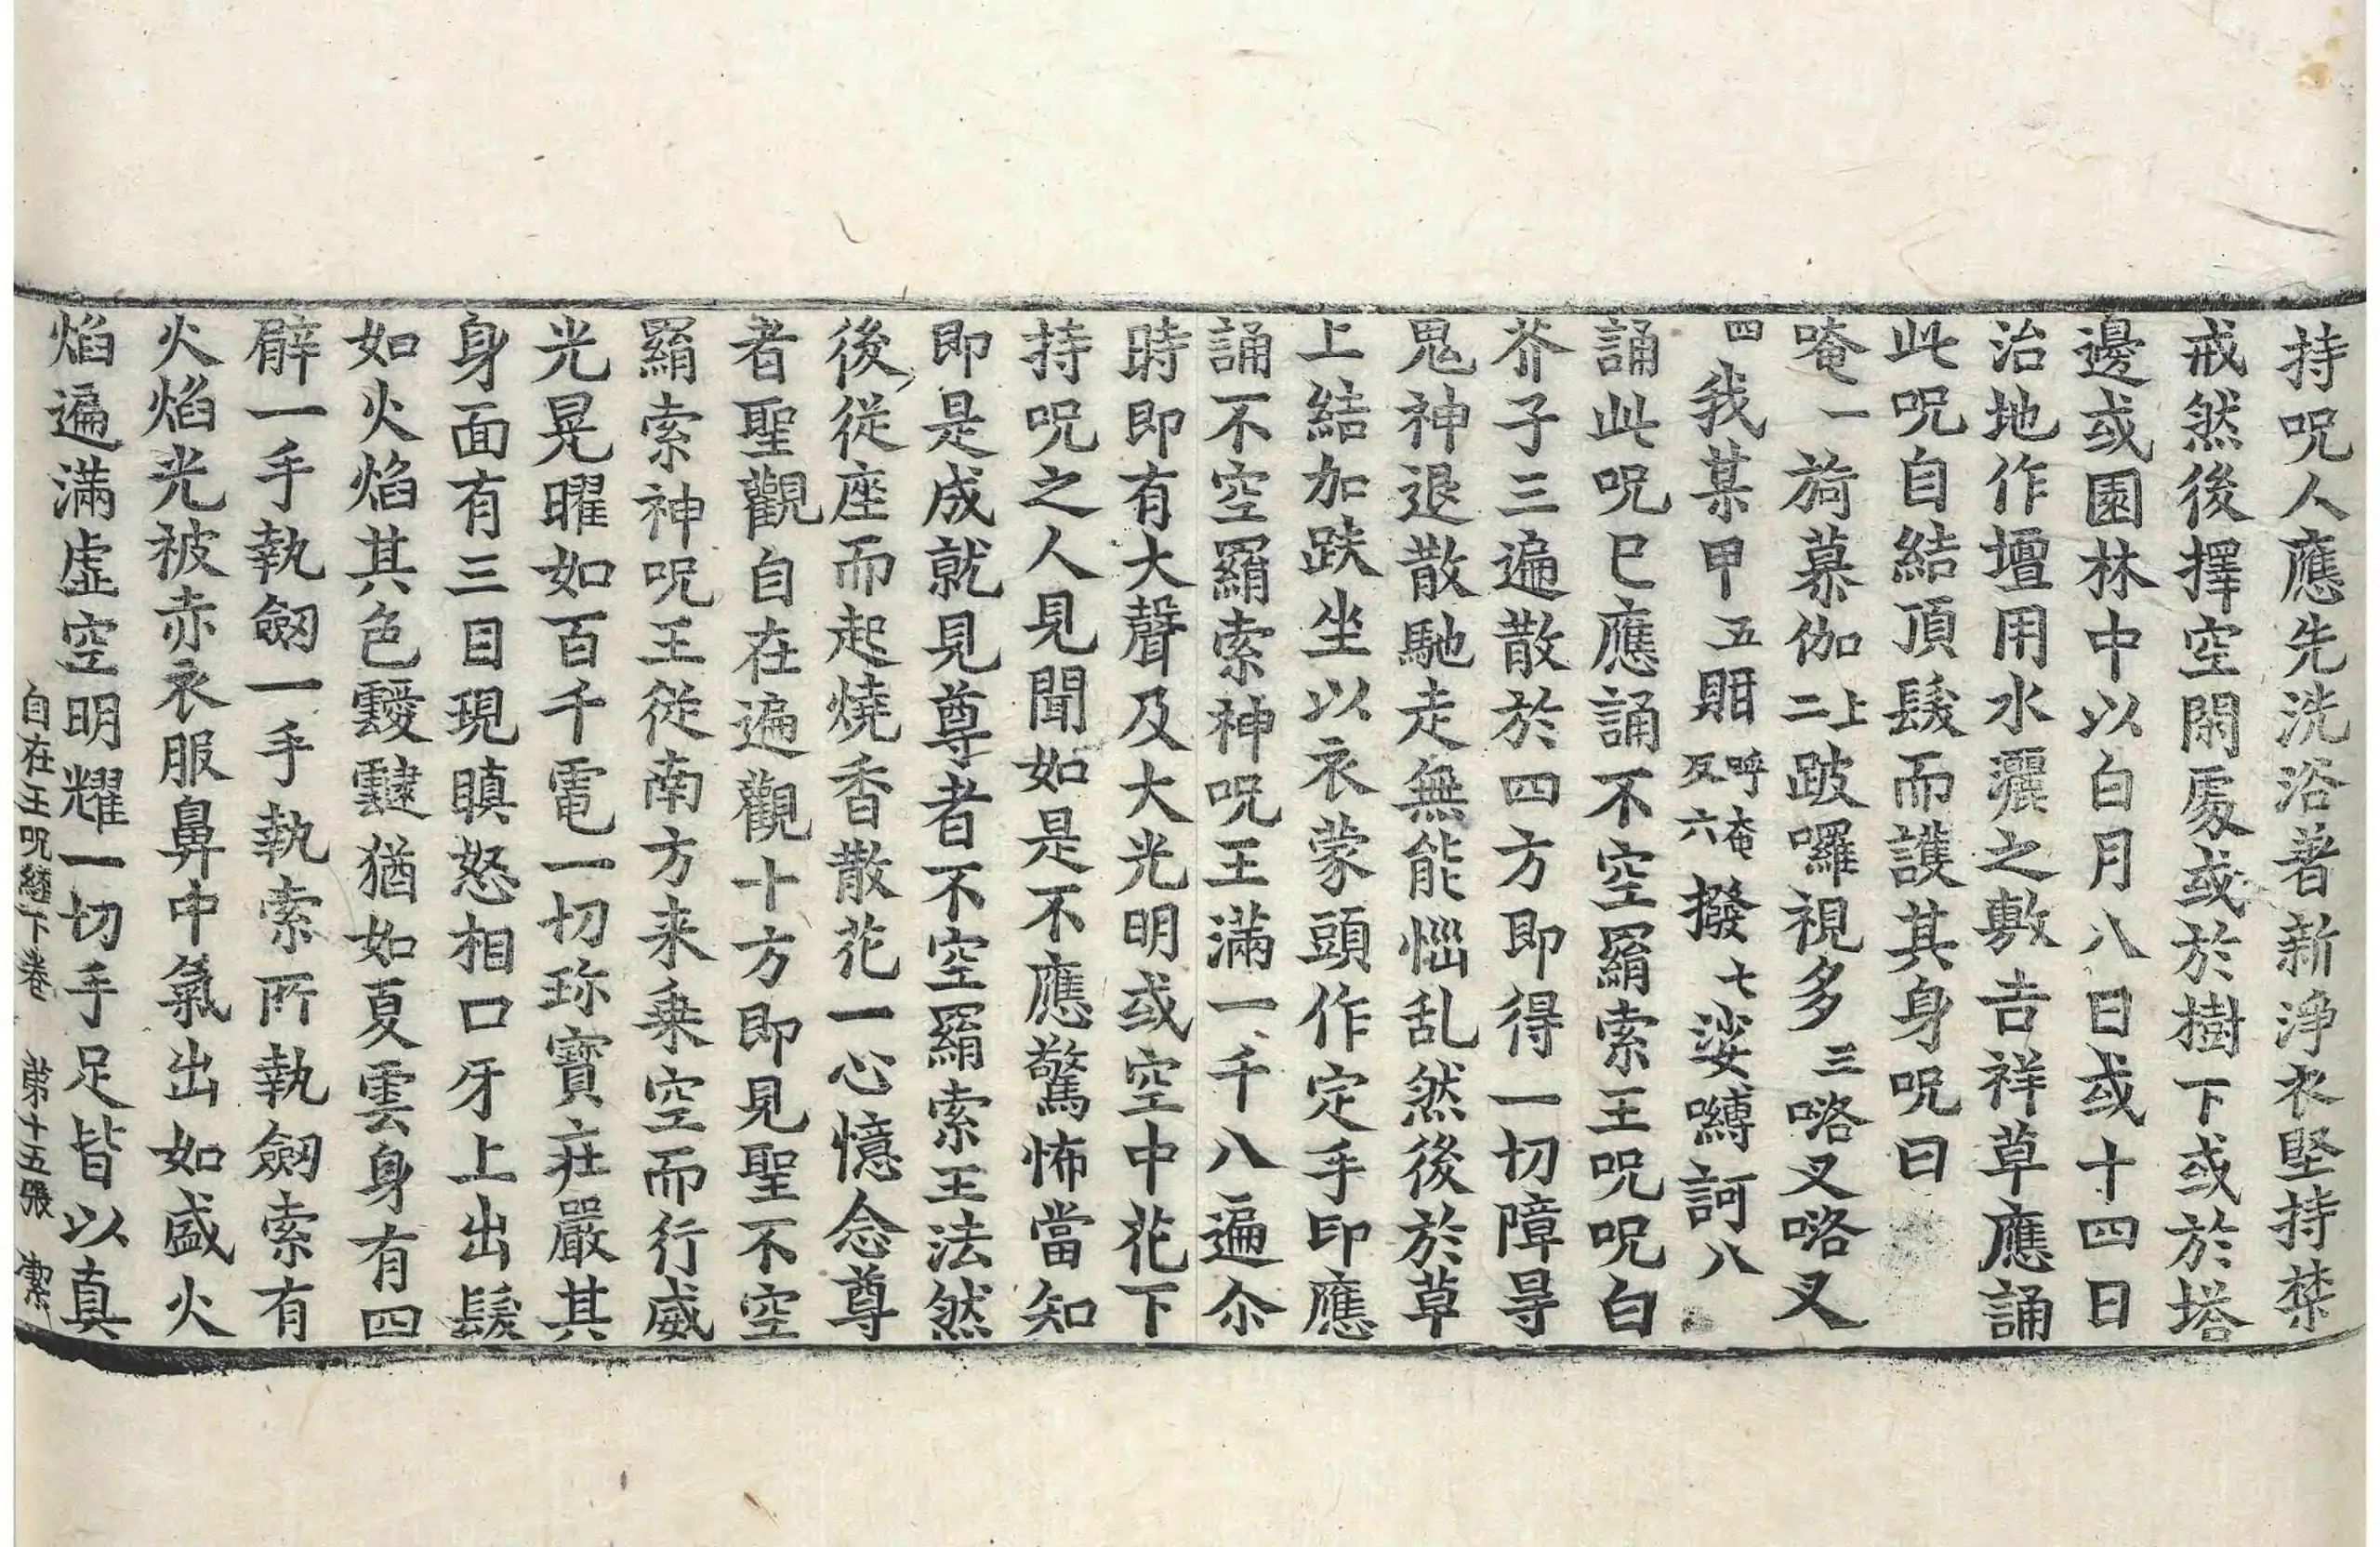 持呪人應先洗浴著新淨衣堅持禁
戒然後擇空閑處或於樹下或於塔
邊或園林中以白月八日或十四日
治地作壇用水灑之敷吉祥草應誦
此呪自結頂髮而護其身呪曰
唵一旖慕伽上二跛囉視多三咯叉咯叉
四我某甲五䎃呼奄反六撥七娑嚩訶八
誦此呪已應誦不空羂索王呪呪白
芥子三遍散於四方即得一切障㝵
鬼神退散馳走無能惱乱然後於草
上結加趺坐以衣蒙頭作定手印應
誦不空羂索神呪王滿一千八遍尒
時即有大聲及大光明或空中花下
持呪之人見聞如是不應驚怖當知
即是成就見尊者不空羂索王法然
後從座而起燒香散花一心憶念尊
者聖觀自在遍觀十方即見聖不空
羂索神呪王從南方来乗空而行威
光晃曜如百千電一切珎寶莊嚴其
身面有三目現瞋怒相口牙上出髮
如火焰其色靉靆猶如夏雲身有四
臂一手執劒一手執索所執劒索有
火焰光被赤衣服鼻中氣出如盛火
焰遍滿虛空明耀一切手足皆以真
自在王呪經下卷 第十五張 潔